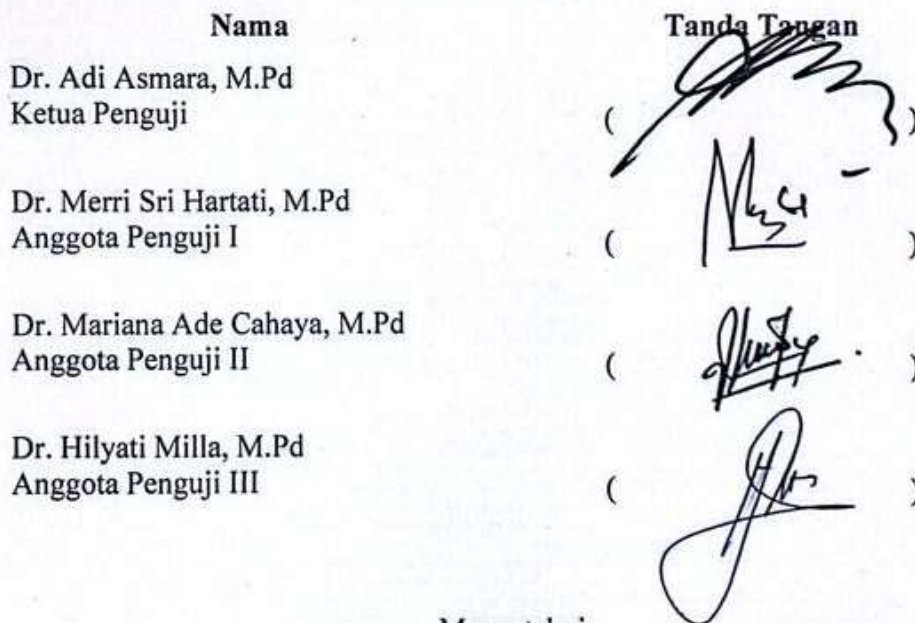 Nama Tanda Tangan
Dr. Adi Asmara, M.Pd
Ketua Penguji ( )
Dr. Merri Sri Hartati, M.Pd
Anggota Penguji I ( )
Dr. Mariana Ade Cahaya, M.Pd
Anggota Penguji II ( )
Dr. Hilyati Milla, M.Pd
Anggota Penguji III ( )